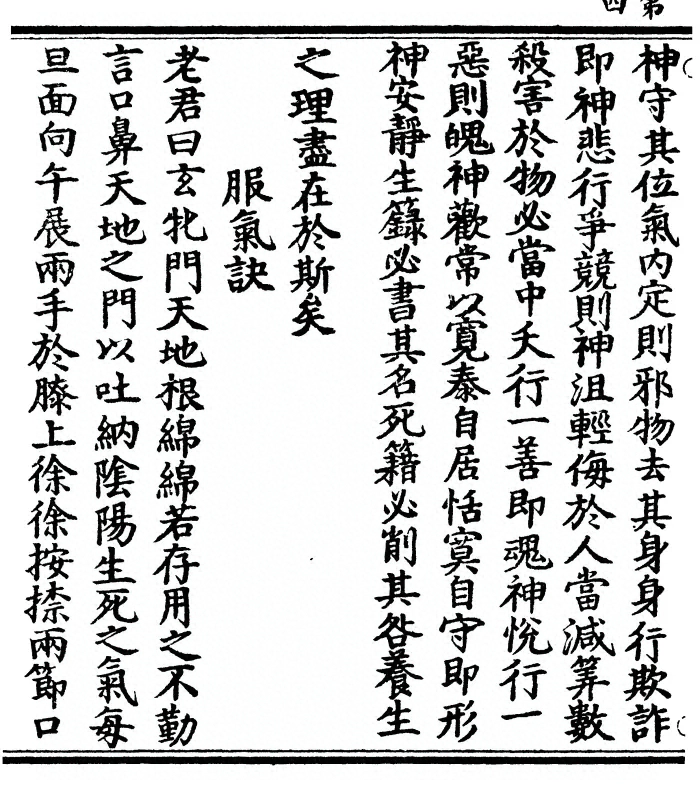 第
四
神守其位氣內定則邪物去其身身行欺詐
即神悲行爭競則神沮輕侮於人當減筭數
殺害於物必當中夭行一善即魂神悅行一
惡則魄神歡常以寬泰自居恬寞自守即形
神安靜生籙必書其名死籍必削其咎養生
之理盡在於斯矣
服氣訣
老君曰玄牝門天地根綿綿若存用之不勤
言口鼻天地之門以吐納陰陽生死之氣每
旦面向午展兩手於膝上徐徐按捺兩節口